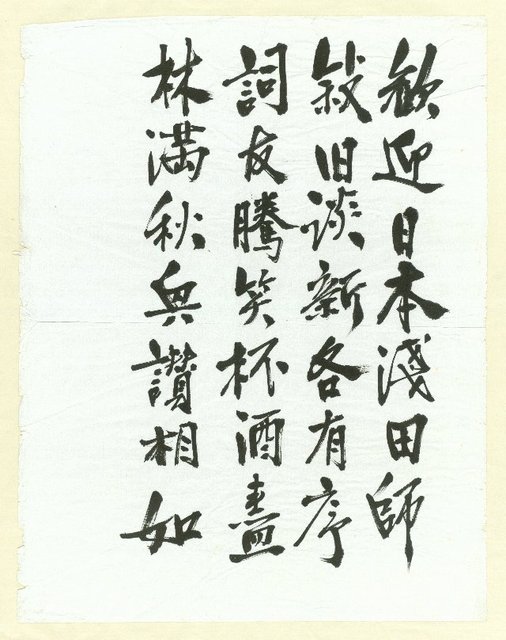 歓迎日本淺田師
敍旧談新各有序
詞友騰笑杯酒盡
林満秋與讃相如